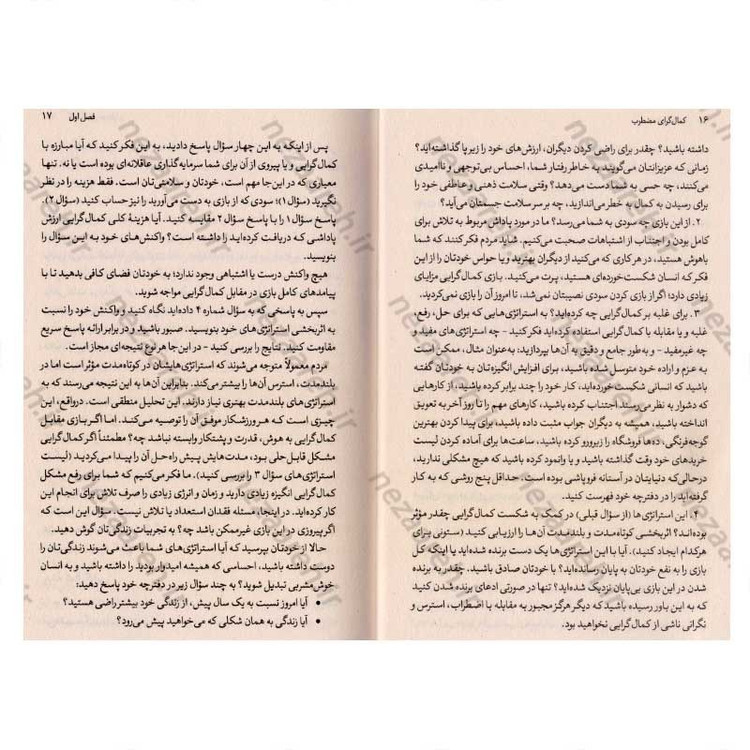 ۱۶ کمال‌گرای مضطرب
داشته باشید؟ چقدر برای راضی کردن دیگران، ارزش‌های خود را زیر پا گذاشته‌اید؟
زمانی که عزیزانتان می‌گویند به خاطر رفتار شما، احساس بی‌توجهی و ناامیدی
می‌کنند، چه حسی به شما دست می‌دهد؟ وقتی سلامت ذهنی و عاطفی خود را
برای رسیدن به کمال به خطر می‌اندازید، چه بر سر سلامت جسمتان می‌آید؟
۲. از این بازی چه سودی به شما می‌رسد؟ ما در مورد پاداش مربوط به تلاش برای
کامل بودن و اجتناب از اشتباهات صحبت می‌کنیم. شاید مردم فکر کنند که شما
باهوش هستید، در هر کاری که می‌کنید از دیگران بهترید و یا حواس خودتان را از این
فکر که انسان شکست‌خورده‌ای هستید، پرت می‌کنید. بازی کمال‌گرایی مزایای
زیادی دارد؛ اگر از بازی کردن سودی نصیبتان نمی‌شد، تا امروز آن را بازی نمی‌کردید.
۳. برای غلبه بر کمال‌گرایی چه کرده‌اید؟ به استراتژی‌هایی که برای حل، رفع،
غلبه و یا مقابله با کمال‌گرایی استفاده کرده‌اید فکر کنید – چه استراتژی‌های مفید و
چه غیرمفید – و به‌طور جامع و دقیق به آن‌ها بپردازید: به‌عنوان مثال، ممکن است
به عزم و اراده خود متوسل شده باشید، برای افزایش انگیزه‌تان به خودتان گفته
باشید که انسانی شکست‌خورده‌اید، کار خود را چند برابر کرده باشید، از کارهایی
که دشوار به نظر می‌رسند اجتناب کرده باشید، کارهای مهم را تا روز آخر به تعویق
انداخته باشید، همیشه به دیگران جواب مثبت داده باشید، برای پیدا کردن بهترین
گوجه‌فرنگی، ده‌ها فروشگاه را زیر و رو کرده باشید، ساعت‌ها برای آماده کردن لیست
خریدهای خود وقت گذاشته باشید و یا وانمود کرده باشید که هیچ مشکلی ندارید،
درحالی‌که دنیایتان در آستانه فروپاشی بوده است. حداقل پنج روشی که به کار
گرفته‌اید را در دفترچه خود فهرست کنید.
۴. این استراتژی‌ها (از سؤال قبلی) در کمک به شکست کمال‌گرایی چقدر مؤثر
بوده‌اند؟ اثربخشی کوتاه‌مدت و بلندمدت آن‌ها را ارزیابی کنید (ستونی برای
هرکدام ایجاد کنید). آیا با این استراتژی‌ها یک دست برنده شده‌اید یا اینکه کل
بازی را به نفع خودتان به پایان رسانده‌اید؟ با خودتان صادق باشید. چقدر به برنده
شدن در این بازی بی‌پایان نزدیک شده‌اید؟ تنها در صورتی ادعای برنده شدن کنید
که به این باور رسیده باشید که دیگر هرگز مجبور به مقابله با اضطراب، استرس و
نگرانی ناشی از کمال‌گرایی نخواهید بود.
فصل اول ۱۷
پس از اینکه به این چهار سؤال پاسخ دادید، به این فکر کنید که آیا مبارزه با
کمال‌گرایی و یا پیروی از آن برای شما سرمایه‌گذاری عاقلانه‌ای بوده است یا نه. تنها
معیاری که در این‌جا مهم است، خودتان و سلامتی‌تان است. فقط هزینه را در نظر
نگیرید (سؤال ۱)؛ سودی که از بازی به دست می‌آورید را نیز حساب کنید (سؤال ۲).
پاسخ سؤال ۱ را با پاسخ سؤال ۲ مقایسه کنید. آیا هزینهٔ کلی کمال‌گرایی ارزش
پاداشی که دریافت کرده‌اید را داشته است؟ واکنش‌های خود به این سؤال را
بنویسید.
هیچ واکنش درست یا اشتباهی وجود ندارد؛ به خودتان فضای کافی بدهید تا با
پیامدهای کامل بازی در مقابل کمال‌گرایی مواجه شوید.
سپس به پاسخی که به سؤال شماره ۴ داده‌اید نگاه کنید و واکنش خود را نسبت
به اثربخشی استراتژی‌های خود بنویسید. صبور باشید و در برابر ارائه پاسخ سریع
مقاومت کنید. نتایج را بررسی کنید – در این‌جا هر نوع نتیجه‌ای مجاز است.
مردم معمولاً متوجه می‌شوند که استراتژی‌هایشان در کوتاه‌مدت مؤثر است اما در
بلندمدت، استرس آن‌ها را بیشتر می‌کند. بنابراین آن‌ها به این نتیجه می‌رسند که به
استراتژی‌های بلندمدت بهتری نیاز دارند. این تحلیل منطقی است. درواقع، این
چیزی است که هر ورزشکار موفق آن را توصیه می‌کند. اما اگر بازی مقابل
کمال‌گرایی به هوش، قدرت و پشتکار وابسته نباشد چه؟ مطمئناً اگر کمال‌گرایی
مشکل قابل‌حلی بود، مدت‌هایش پیش راه‌حل آن را پیدا می‌کردید (لیست
استراتژی‌های سؤال ۳ را بررسی کنید). ما فکر می‌کنیم که شما برای رفع مشکل
کمال‌گرایی انگیزه زیادی دارید و زمان و انرژی زیادی را صرف تلاش برای انجام این
کار کرده‌اید. در اینجا، مسئله فقدان استعداد یا تلاش نیست. سؤال این است که
اگر پیروزی در این بازی غیرممکن باشد چه؟ به تجربیات زندگی‌تان گوش دهید.
حالا از خودتان بپرسید که آیا استراتژی‌های شما باعث می‌شوند زندگی‌تان را
دوست داشته باشید، احساسی که همیشه امیدوار بودید را داشته باشید و به انسان
خوش‌مشربی تبدیل شوید؟ به چند سؤال زیر در دفترچه خود پاسخ دهید:
• آیا امروز نسبت به یک سال پیش، از زندگی خود بیشتر راضی هستید؟
• آیا زندگی به همان شکلی که می‌خواهید پیش می‌رود؟